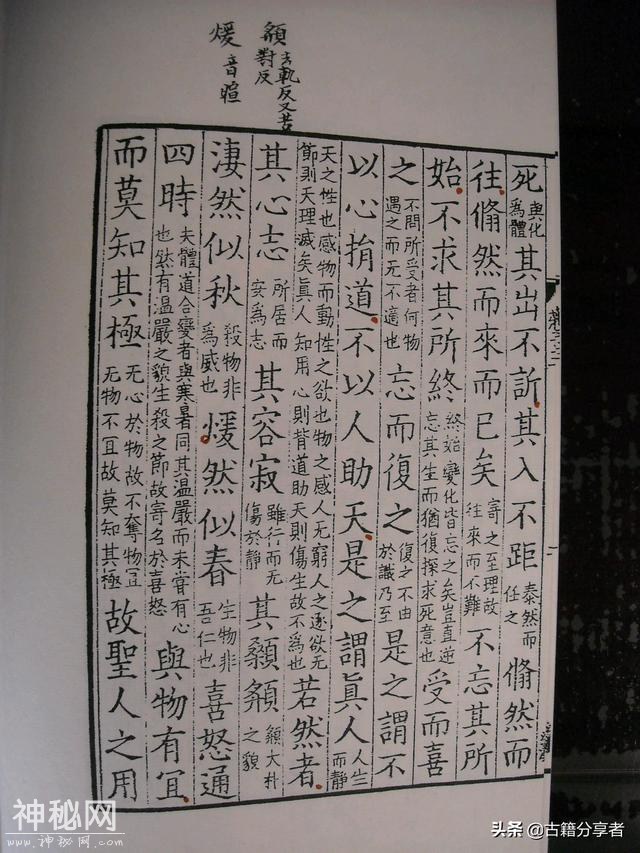 頯去軌反又苦對反
煖音暄
死與化為體其出不訢其入不距泰然而任之翛然而
往翛然而來而已矣寄之至理故往來而不難不忘其所
始不求其所終終始變化皆忘之矣豈直逆忘其生而猶復探求死意也受而喜
之不問所受者何物遇之而无不適也忘而復之復之不由於識乃至是之謂不
以心揖道不以人助天是之謂眞人人生而靜
天之性也感物而動性之欲也物之感人无窮人之逐欲无節則天理滅矣眞人知用心則背道助天則傷生故不為也若然者
其心志所居而安為志其容寂雖行而无傷於靜其顙頯頯大朴之貌
淒然似秋殺物非為威也煖然似春生物非吾仁也喜怒通
四時夫體道合變者與寒暑同其溫嚴而未嘗有心也然有溫嚴之貌生殺之節故寄名於喜怒與物有宜
而莫知其極无心於物故不奪物宜无物不宜故莫知其極故聖人之用
神秘网
www.wxlik.cn
头条 @古籍分享者